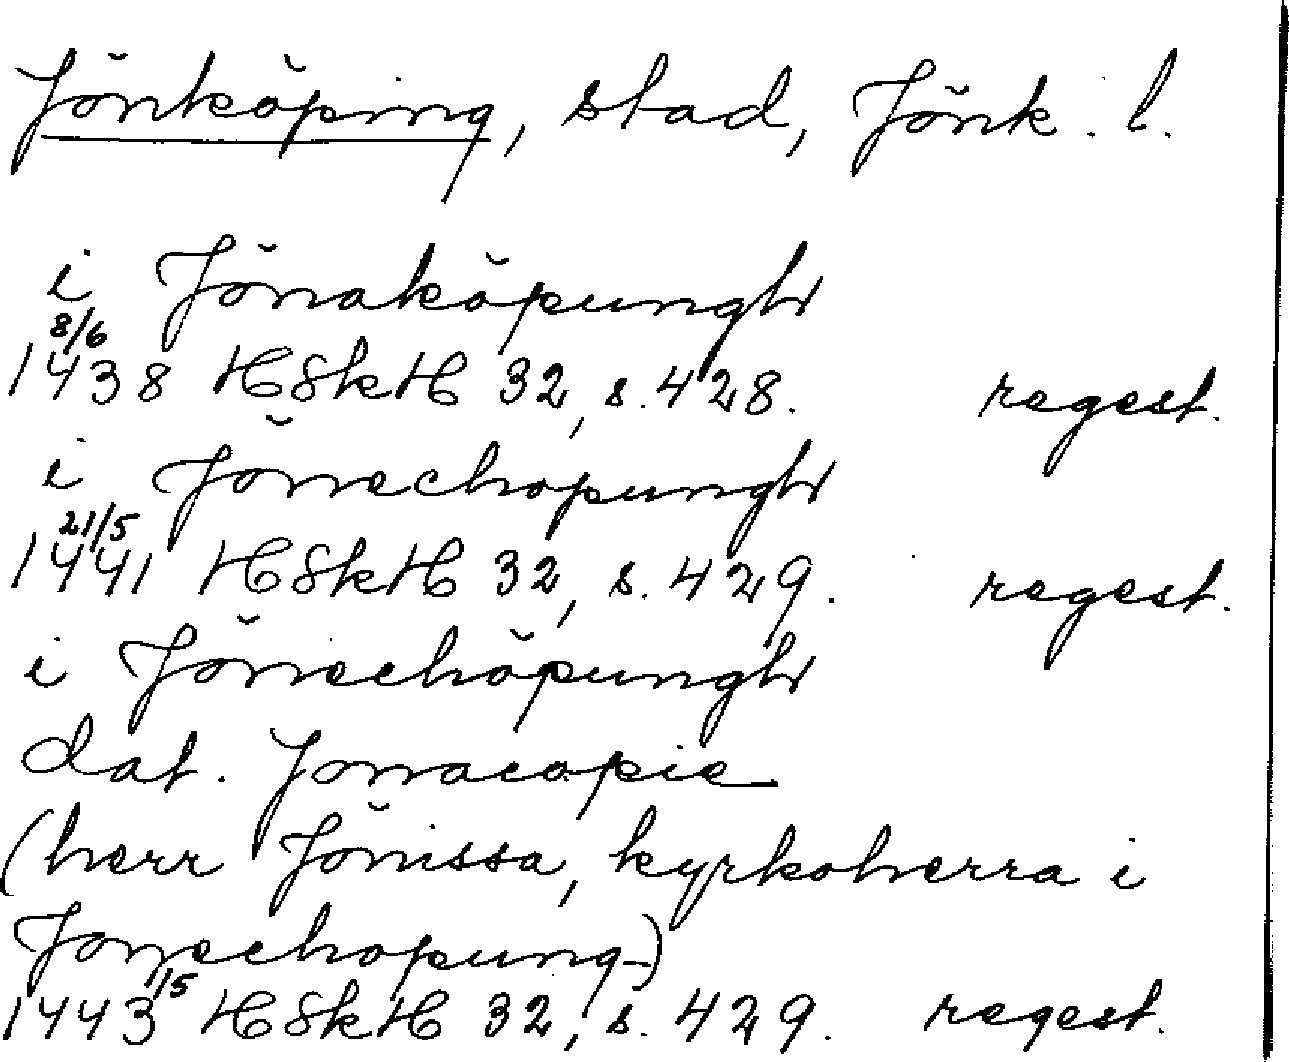 Jönköping, stad, Jönk. l.
i Jönaköpungh
8/6
1438 HSkH 32, s. 428. regest.
i Jönechopungh
21/5
1441 HSkH 32, s. 429. regest.
i Jönechöpungh
dat. Jonacopie
(herr Jönissa, kyrkoherra i
Jonechopung)
1/5
1443 HSkH 32, s. 429. regest.